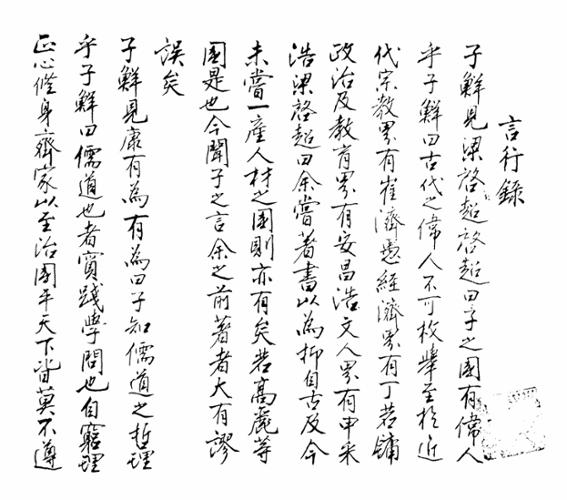 言行錄
子鮮見梁啓超啓超曰子之國有偉人
乎子鮮曰古代之偉人不可枚擧至於近
代宗教界有崔濟愚經濟界有丁若鏞
政治及教育界有安昌浩文人界有申采
浩梁啓超曰余嘗著書以為抑自古及今
未嘗一產人材之國則亦有矣若高麗等
國是也今聞子之言余之前著者大有謬
誤矣
子鮮見康有為有為曰子知儒道之哲理
乎子鮮曰儒道也者實踐學問也自窮理
正心修身齊家以至治國平天下皆莫不遵